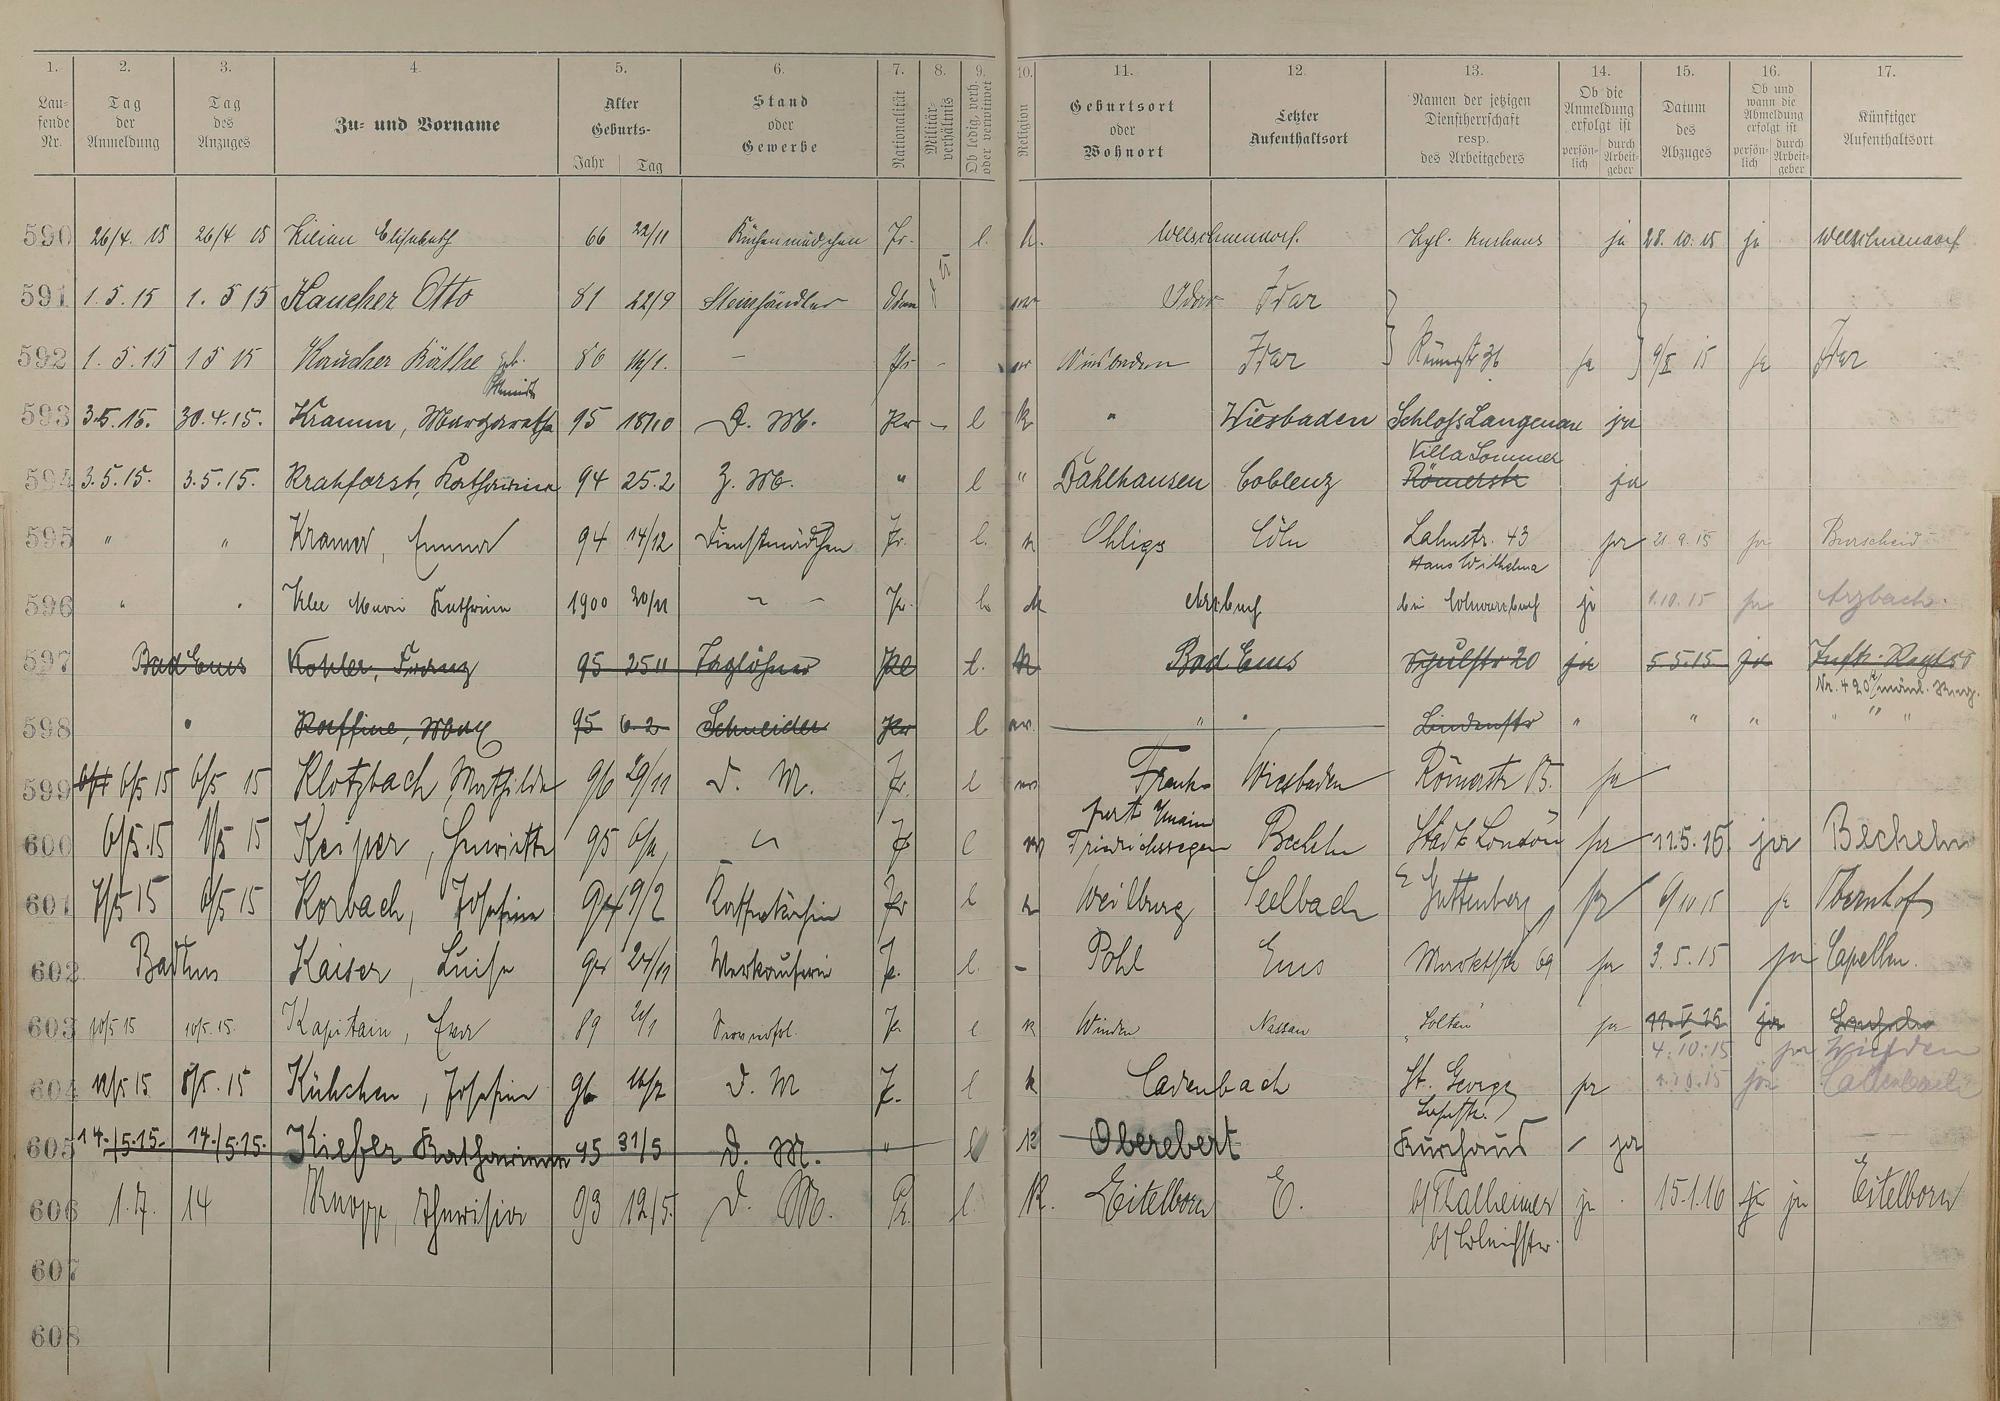 1. 2. 3. 4. 5. 6. 7. 8. 9. 10. 11. 12. 13. 14. 15. 16. 17.
Lau-
fende
Nr.
Tag
der
Anmeldung
Tag
des
Anzuges
Zu- und Vorname
Alter
Geburts-
Jahr Tag
Stand
oder
Gewerbe
Nationalität
Militär-
verhältnis
Ob ledig, verh.
oder verwitwet
Religion
Geburtsort
oder
Wohnort
Letzter
Aufenthaltsort
Namen der jetzigen
Dienstherrschaft
resp.
des Arbeitgebers
Ob die
Anmeldung
erfolgt ist
persön-
lich
durch
Arbeit-
geber
Datum
des
Abzuges
Ob und
wann die
Abmeldung
erfolgt ist
persön-
lich
durch
Arbeit-
geber
Künftiger
Aufenthaltsort
590 26/4. 15 26/4 15 Kilian Elisabeth 66 22/11 Küchenmädchen Pr. l. k. Welschneudorf. Kgl. Kurhaus ja 28. 10. 15 ja Welschneudorf
591 1. 5. 15 1. 5 15 Haucher Otto 81 22/9 Steinhändler Idar Idar
592 1. 5. 15 1 5 15 Haucher Käthe geb. 86 – Pr – Wiesbaden Idar Römerstr 36 ja 15 ja Idar
593 3.5. 15. 30. 4. 15. Kramm, Margaretha 95 18/10 D. M. Pr – l k " Wiesbaden Schloß Langenau ja
Villa Sommer
594 3. 5. 15. 3. 5. 15. Krahforst, Katharina 94 25. 2 Z. M. " l " Dahlhausen Coblenz Römerstr ja
595 " " Kramer, Emma 94 14/12 Dienstmädchen Pr. l. k Ohligs Cöln Lahnstr. 43 ja 21. 9. 15 ja Burscheid
Haus Wilhelma
596 " " Klee Marie Kathrina 1900 20/11 Pr. l. k Arzbach bei ja 1. 10. 15 ja Arzbach.
597 Bad Ems Kohler, Franz 95 25 11 Taglöhner l. k Bad Ems Schulstr 20 ja 5. 5. 15 ja
598 " 95 6. 2 Schneider Pr l " " Lindenstr " " " " " "
599 6/5 15 6/5 15 Klotzbach, Mathilde 96 29/11 D. M. Pr. l Frank- Wiesbaden Römerstr 15. ja
furt Main
600 6/5. 15 15 Keiper, Henriette 95 " Pr l Friedrichssegen Becheln Stadt London ja 11. 5. 15 ja Becheln
601 7/5 15 6/5 15 Korbach, Josefine 9/2 Kaffeeköchin Pr l k Weilburg Seelbach Guttenberg ja 15 ja Obernhof
602 Bad Ems Kaiser, Luise 24/11 Verkäuferin P. l. – Pohl Ems Marktstr 69 ja 3. 5. 15 ja Capellen.
603 10/5 15 10/5. 15. Kapitain, Eva 89 P. l k Winden Nassau ja 11. V 15 ja
4. 10. 15 ja Winden
604 12/5 15 8/5. 15 Kühchen, Josefine 96 D. M P. l k Cadenbach St. Georg ja ja Cadenbach
605 14./5. 15. 14./5. 15. Kiefer Katharina 95 31/5 D. M. " l k Oberebert Kurhaus – ja
606 1. 7. 14 93 12/5. D. M. Pr. l. K. Eitelborn E. b/ Thalheimer ja 15. 1. 16 ja ja Eitelborn
607
608